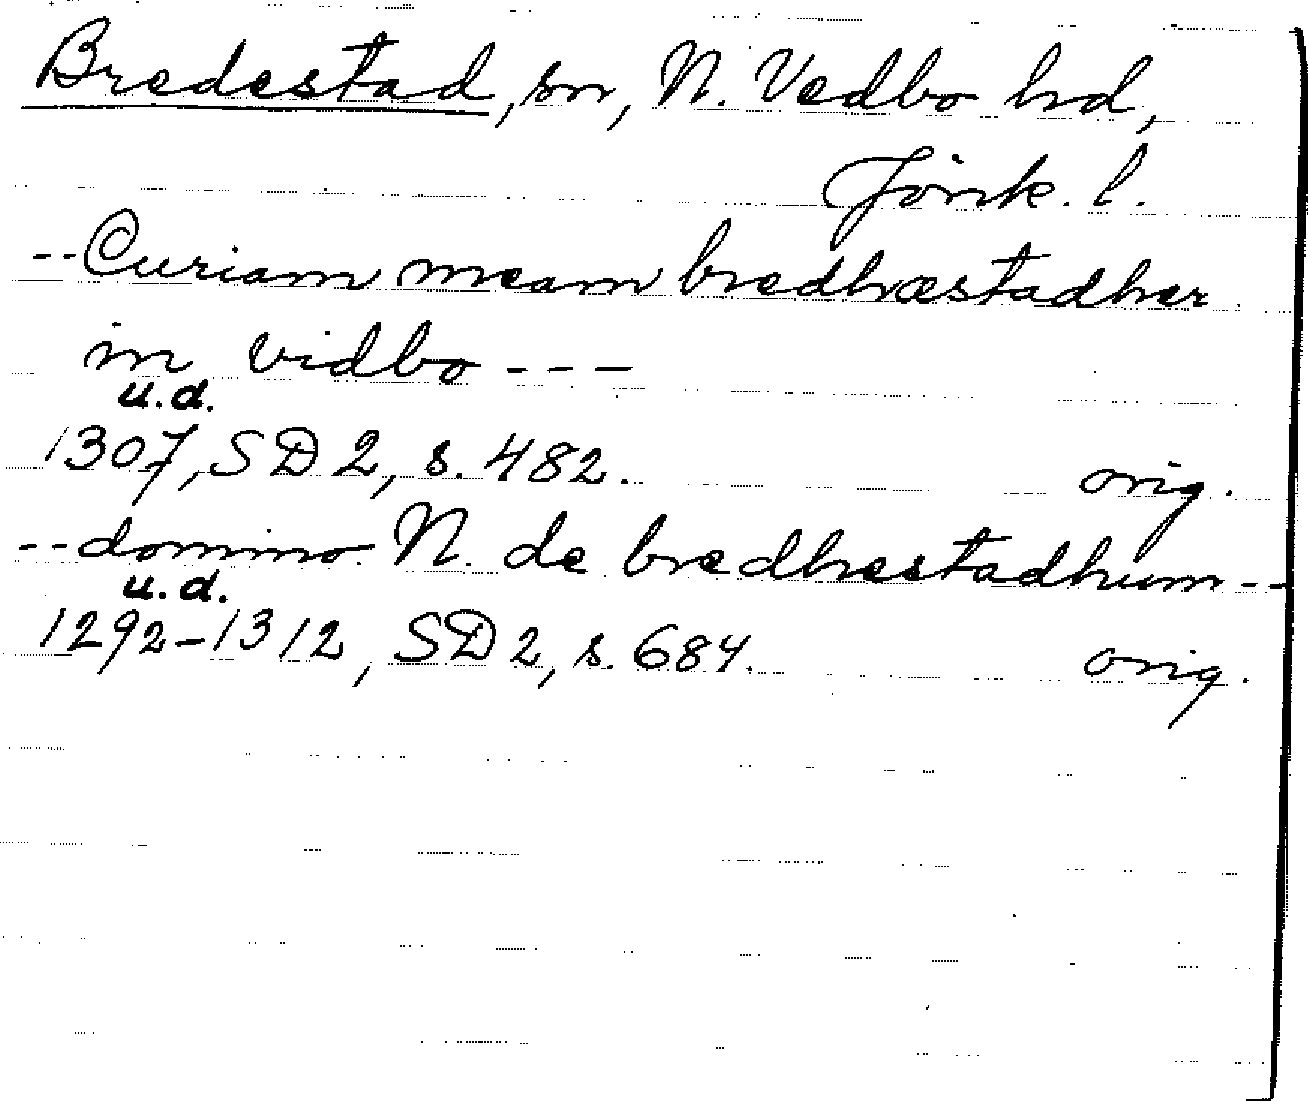 Bredestad, sn, N. Vedbo hd,
Jönk. l.
--Curiam meam bredhæstadher
in vidbo ---
u.d.
1307, SD 2, s. 482. orig.
--domino N. de bredhestadhum--
u.d.
1292-1312, SD 2, s. 684. orig.